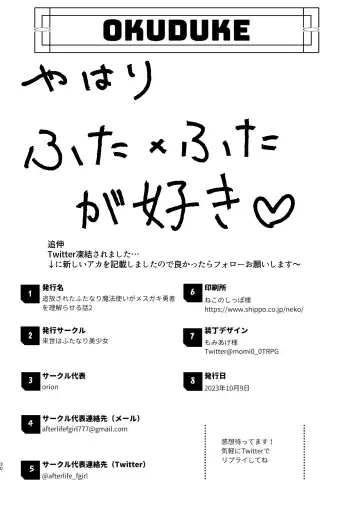 OKUDUKE
やはり
ふた×ふた
が好き♡
追伸
Twitter凍結されました…
↓に新しいアカを記載しましたので良かったらフォローお願いします～
1 発行名
追放されたふたなり魔法使いがメスガキ勇者
を理解らせる話2
2 発行サークル
来世はふたなり美少女
3 サークル代表
orion
4 サークル代表連絡先（メール）
afterlifefgirl777@gmail.com
5 サークル代表連絡先（Twitter）
@afterlife_fgirl
6 印刷所
ねこのしっぽ様
https://www.shippo.co.jp/neko/
7 装丁デザイン
もみあげ様
Twitter@momi0_0TRPG
8 発行日
2023年10月9日
感想待ってます！
気軽にTwitterで
リプライしてね